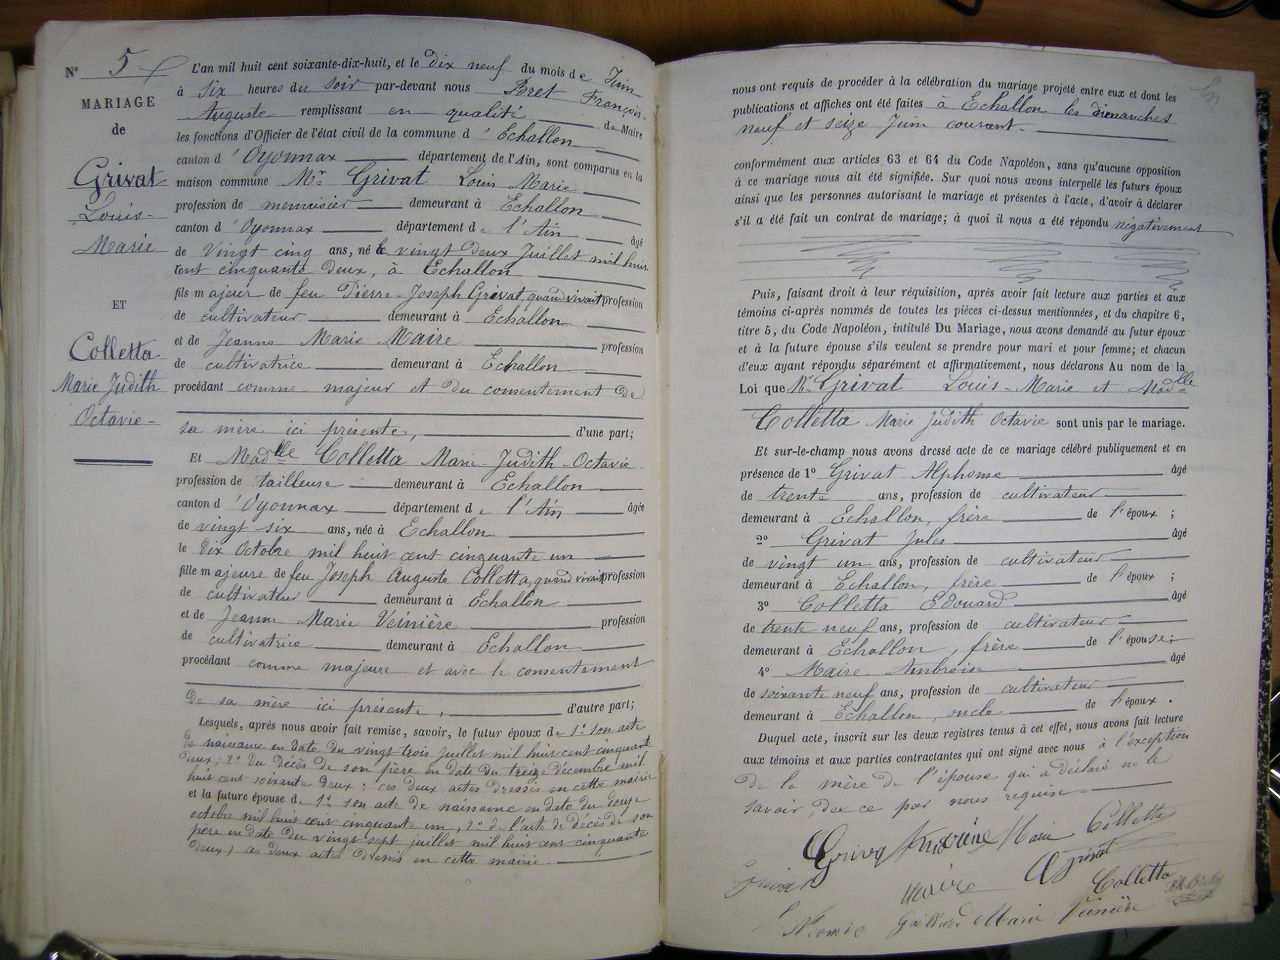 N° 5
MARIAGE
de
Grivat
Louis-
Marie
ET
Colletta
Marie Judith
Octavie-
L'an mil huit cent soixante-dix-huit, et le dix neuf du mois de Juin
à six heures du soir par-devant nous Poret François-
Auguste remplissant en qualité de Maire
les fonctions d'Officier de l'état civil de la commune d'Echallon
canton d'Oyonnax département de l'Ain, sont comparus en la
maison commune Mr Grivat Louis Marie
profession de menuisier demeurant à Echallon
canton d'Oyonnax département de l'Ain âgé
de vingt cinq ans, né le vingt deux Juillet mil huit
cent cinquante deux, à Echallon
fils majeur de feu Pierre-Joseph Grivat, quand vivait profession
de cultivateur demeurant à Echallon
et de Jeanne Marie Maire profession
de cultivatrice demeurant à Echallon
procédant comme majeur et du consentement de
sa mère ici présente, d'une part;
Et Madlle Colletta Marie-Judith-Octavie
profession de tailleuse demeurant à Echallon
canton d'Oyonnax département de l'Ain âgée
de vingt six ans, née à Echallon
le dix Octobre mil huit cent cinquante un
fille majeure de feu Joseph Auguste Colletta, quand vivait profession
de cultivateur demeurant à Echallon
et de Jeanne Marie Veinière profession
de cultivatrice demeurant à Echallon
procédant comme majeure et avec le consentement
de sa mère ici présente, d'autre part;
Lesquels, après nous avoir fait remise, savoir, le futur époux de 1° son acte
de naissance en date du vingt trois juillet mil huit cent cinquante
deux; 2° du décès de son père en date du treize décembre mil
huit cent soixante deux: ces deux actes dressés en cette mairie
et la future épouse de 1° son acte de naissance en date du douze
octobre mil huit cent cinquante un, 2° de l'acte de décès de son
père en date du vingt sept juillet mil huit cent cinquante
deux; ces deux actes dressés en cette mairie.
nous ont requis de procéder à la célébration du mariage projeté entre eux et dont les
publications et affiches ont été faites à Echallon les dimanches
neuf et seize Juin courant.
conformément aux articles 63 et 64 du Code Napoléon, sans qu'aucune opposition
à ce mariage nous ait été signifiée. Sur quoi nous avons interpellé les futurs époux
ainsi que les personnes autorisant le mariage et présentes à l'acte, d'avoir à déclarer
s'il a été fait un contrat de mariage; à quoi il nous a été répondu négativement
Puis, faisant droit à leur réquisition, après avoir fait lecture aux parties et aux
témoins ci-après nommés de toutes les pièces ci-dessus mentionnées, et du chapitre 6,
titre 5, du Code Napoléon, intitulé Du Mariage, nous avons demandé au futur époux
et à la future épouse s'ils veulent se prendre pour mari et pour femme; et chacun
d'eux ayant répondu séparément et affirmativement, nous déclarons Au nom de la
Loi que Mr Grivat Louis-Marie et Madlle
Colletta Marie Judith Octavie sont unis par le mariage.
Et sur-le-champ nous avons dressé acte de ce mariage célébré publiquement et en
présence de 1° Grivat Alphonse âgé
de trente ans, profession de cultivateur
demeurant à Echallon, frère de l'époux;
2° Grivat Jules âgé
de vingt un ans, profession de cultivateur
demeurant à Echallon, frère de l'époux;
3° Colletta Edouard âgé
de trente neuf ans, profession de cultivateur
demeurant à Echallon, frère de l'épouse;
4° Maire Ambroise âgé
de soixante neuf ans, profession de cultivateur
demeurant à Echallon, oncle de l'époux.
Duquel acte, inscrit sur les deux registres tenus à cet effet, nous avons fait lecture
aux témoins et aux parties contractantes qui ont signé avec nous à l'exception
de la mère de l'épouse qui a déclaré ne le
savoir, de ce par nous requise
Marie Colletta
Grivat maire
Colletta
Marie Veinière